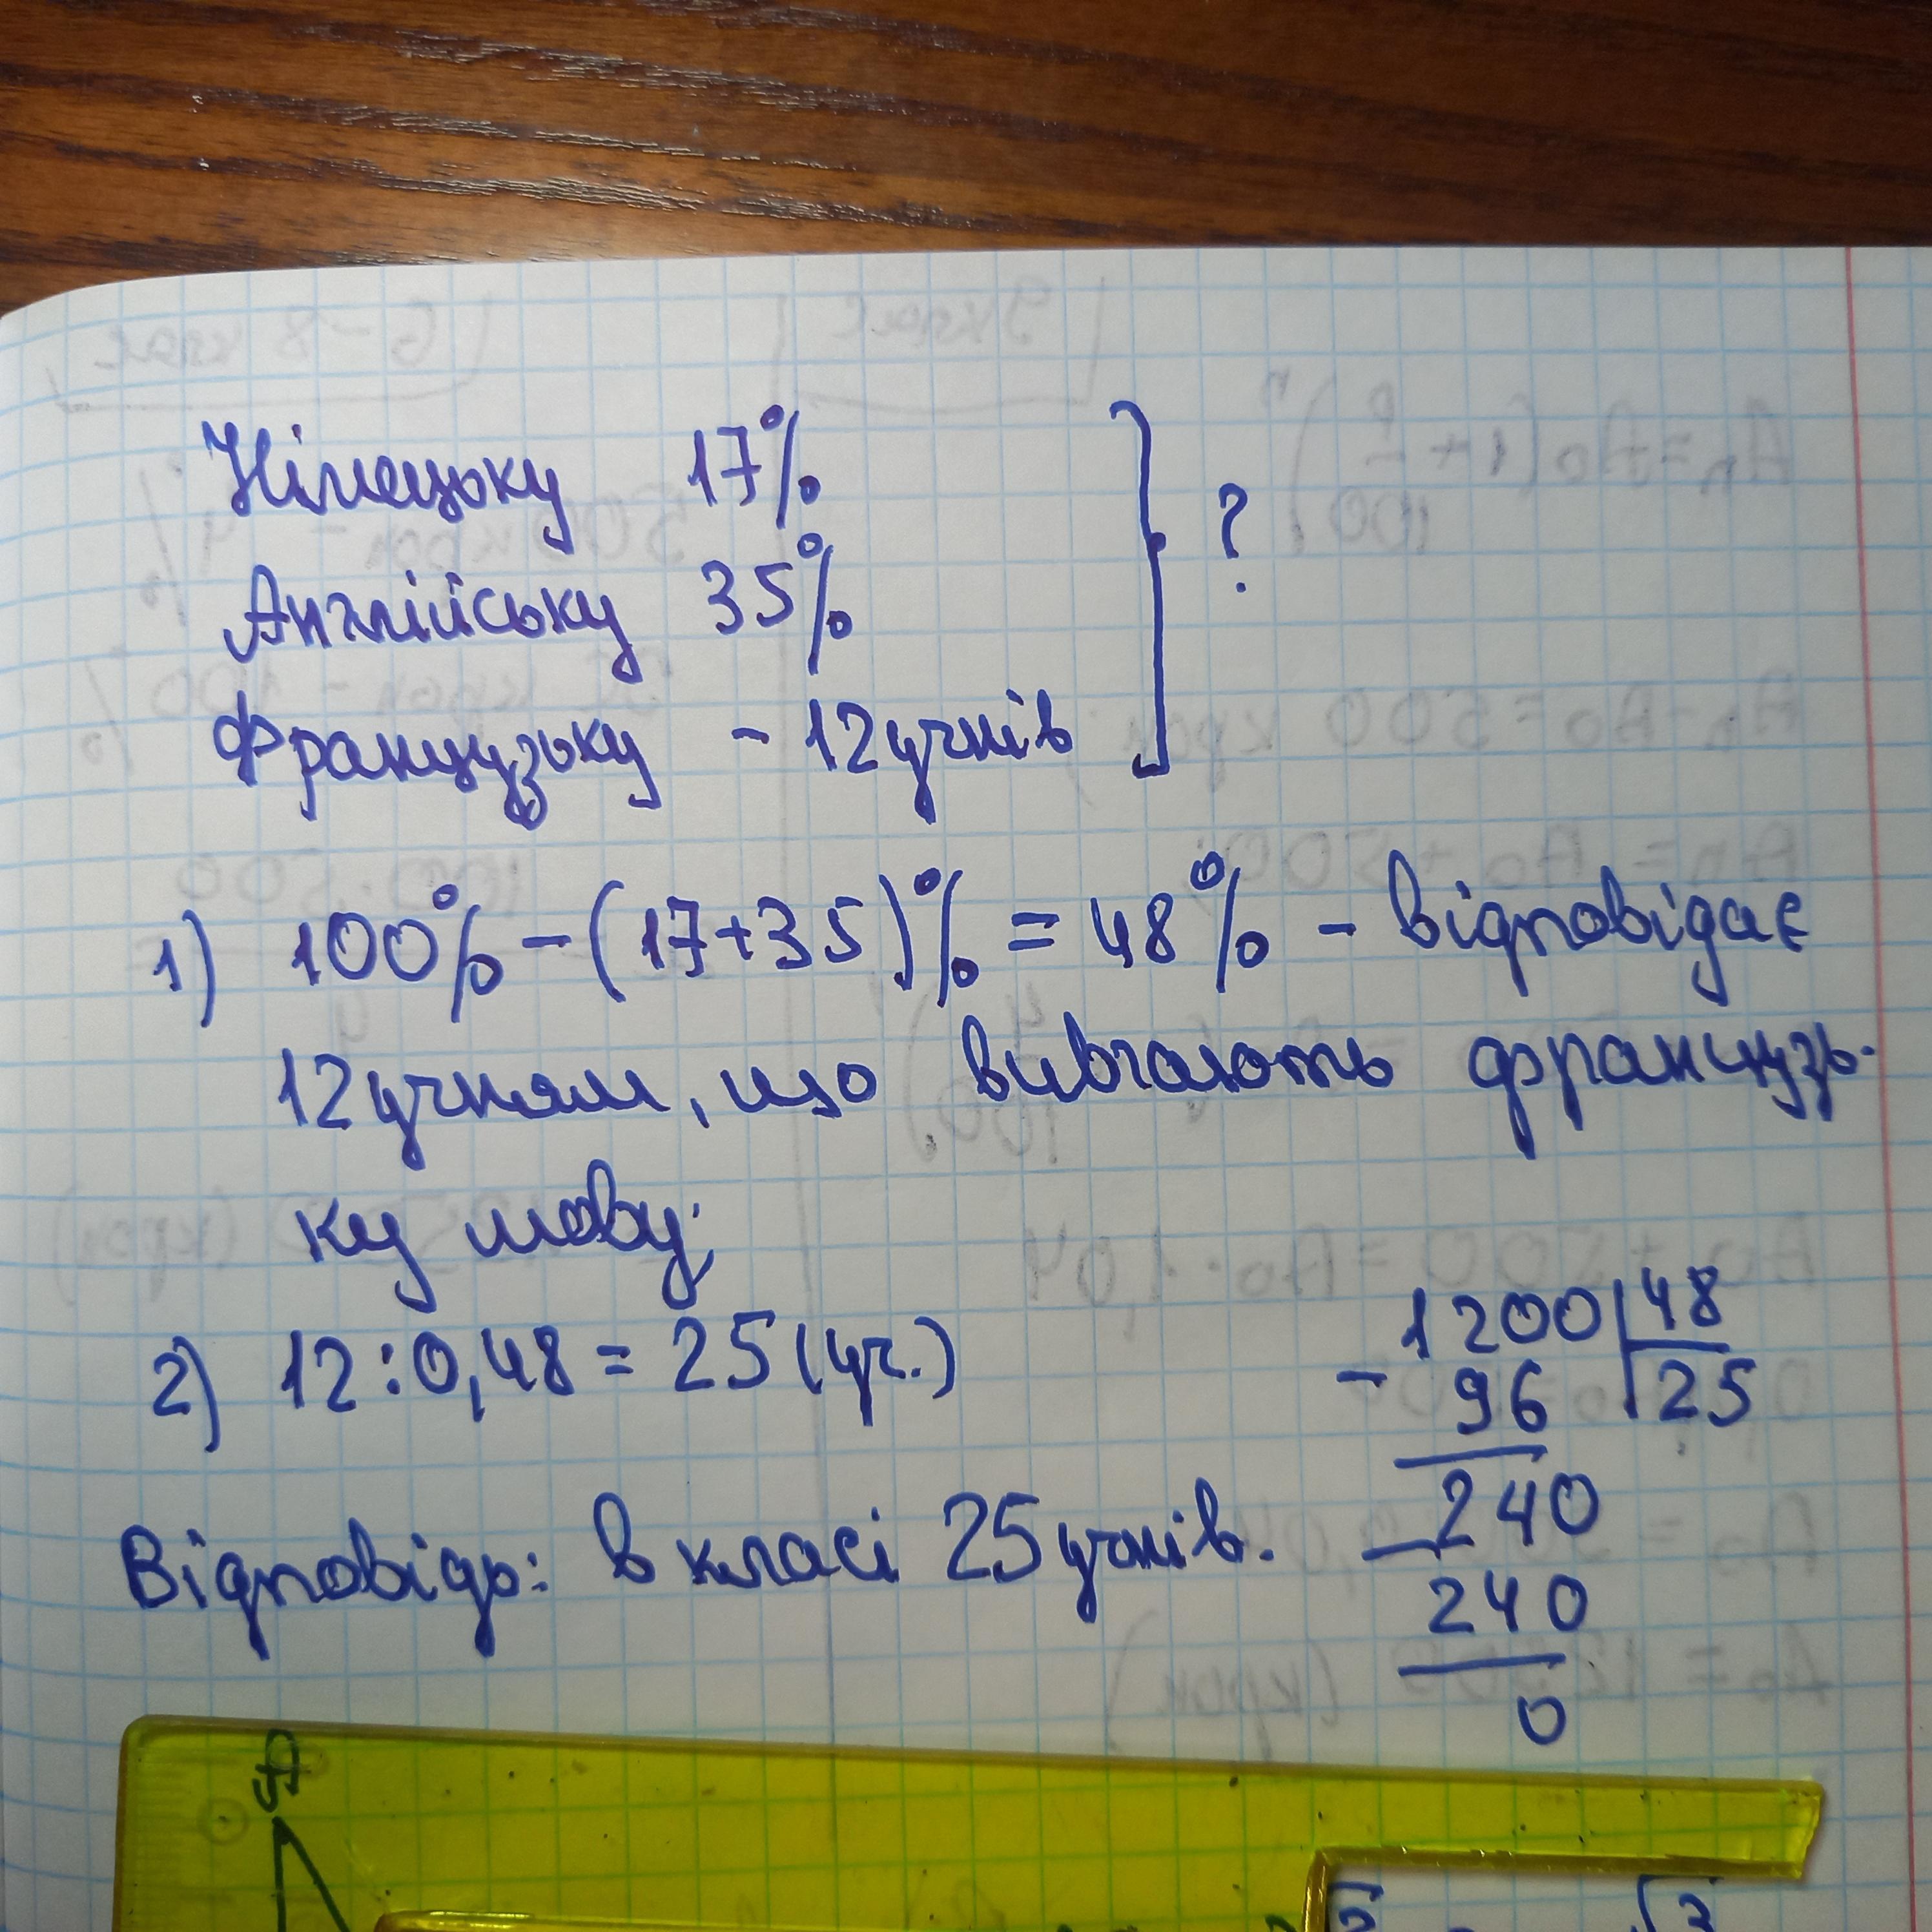 Німецьку 17%
Англійську 35%
Французьку - 12 учнів
?
1) 100% - (17+35)% = 48% - відповідає
12 учням, що вивчають французь-
ку мову;
2) 12 : 0,48 = 25 (уч.)
1200 48
- 96 25
240
- 240
0
Відповідь: в класі 25 учнів.
A